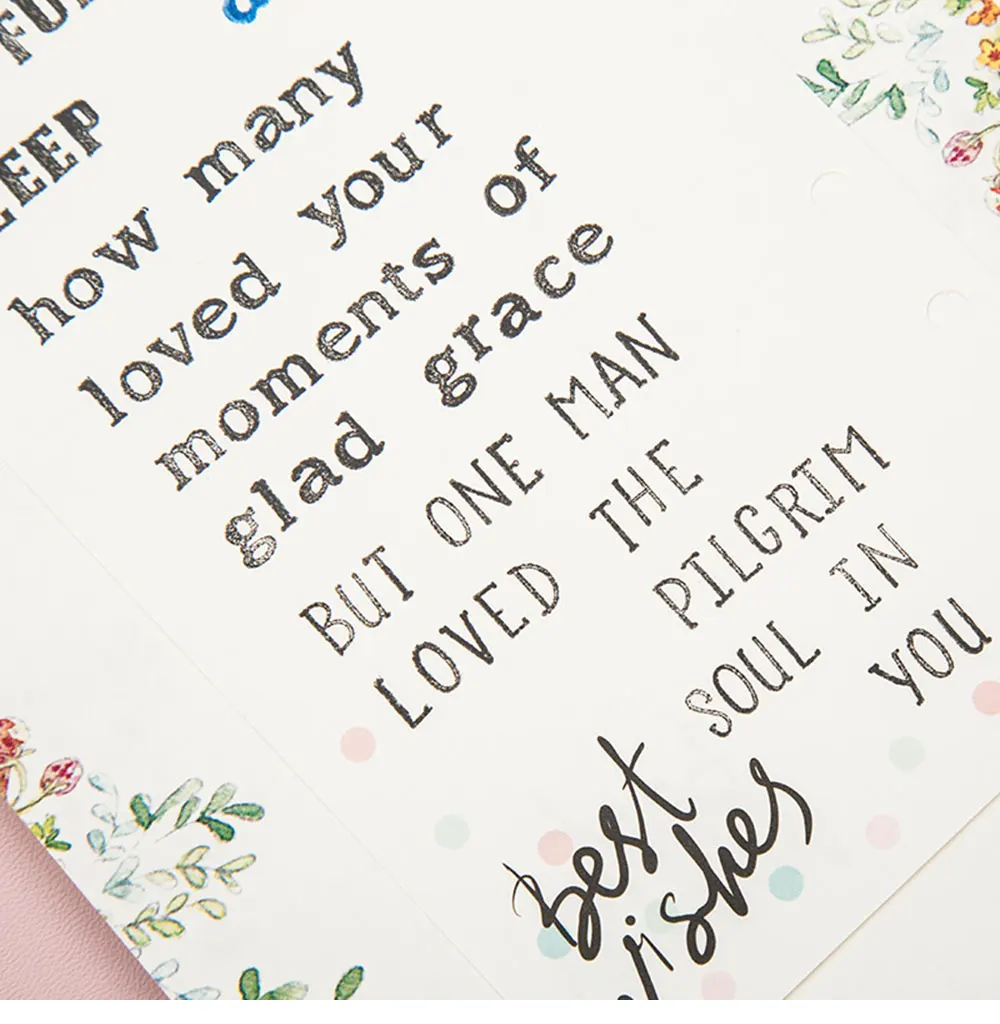 how many
loved your
moments of
glad grace
BUT ONE MAN
LOVED THE
PILGRIM
SOUL IN
YOU
Best
wishes